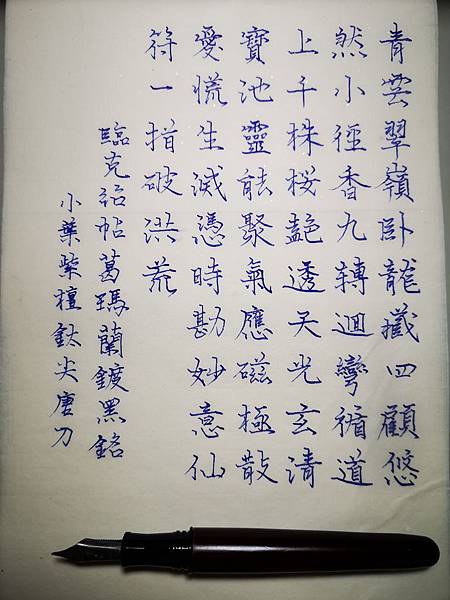 青雲翠嶺臥龍藏四顧悠
然小徑香九轉迴彎循道
上千株桜艶透天光玄清
寶池靈能聚氣應磁極散
愛慌生滅憑時勘妙意仙
符一指破洪荒
臨克治帖葛瑪蘭鍍黑銘
小葉紫檀鈦尖唐刀